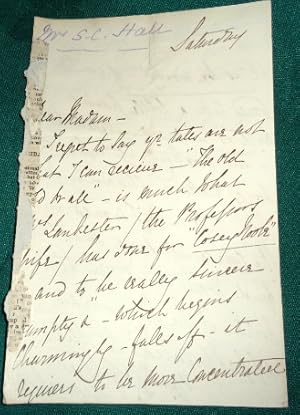 Mrs S. C. Hall
Saturday
Dear Madam -
I regret to say yr tales are not
I can receive - "The old
is much what
Lankester / the Professors
wife / has done for "Cosey Nook"
and to be really sincere
- which begins
Charmingly - falls off - it
requires to be more concentrated